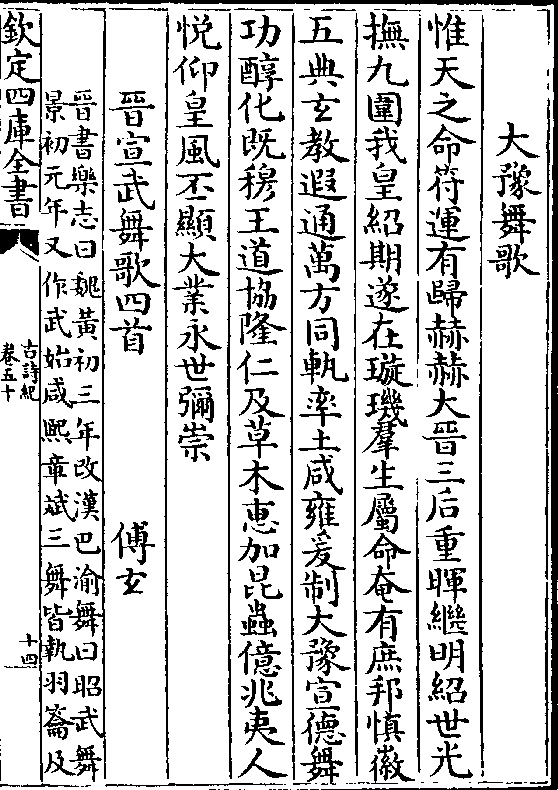 大豫舞歌
惟天之命符運有歸赫赫大晉三后重暉繼明紹世光
撫九圍我皇紹期遂在璇璣羣生屬命奄有庶邦慎徽
五典玄教遐通萬方同軌率土咸雍爰制大豫宣德舞
功醇化既穆王道協隆仁及草木惠加昆蟲億兆夷人
悅仰皇風丕顯大業永世彌崇
晉宣武舞歌四首 傅玄
晉書樂志曰魏黃初三年改漢巴渝舞曰昭武舞
景初元年又作武始咸熙章斌三舞皆執羽籥及
欽定四庫全書
古詩紀
卷五十
十四